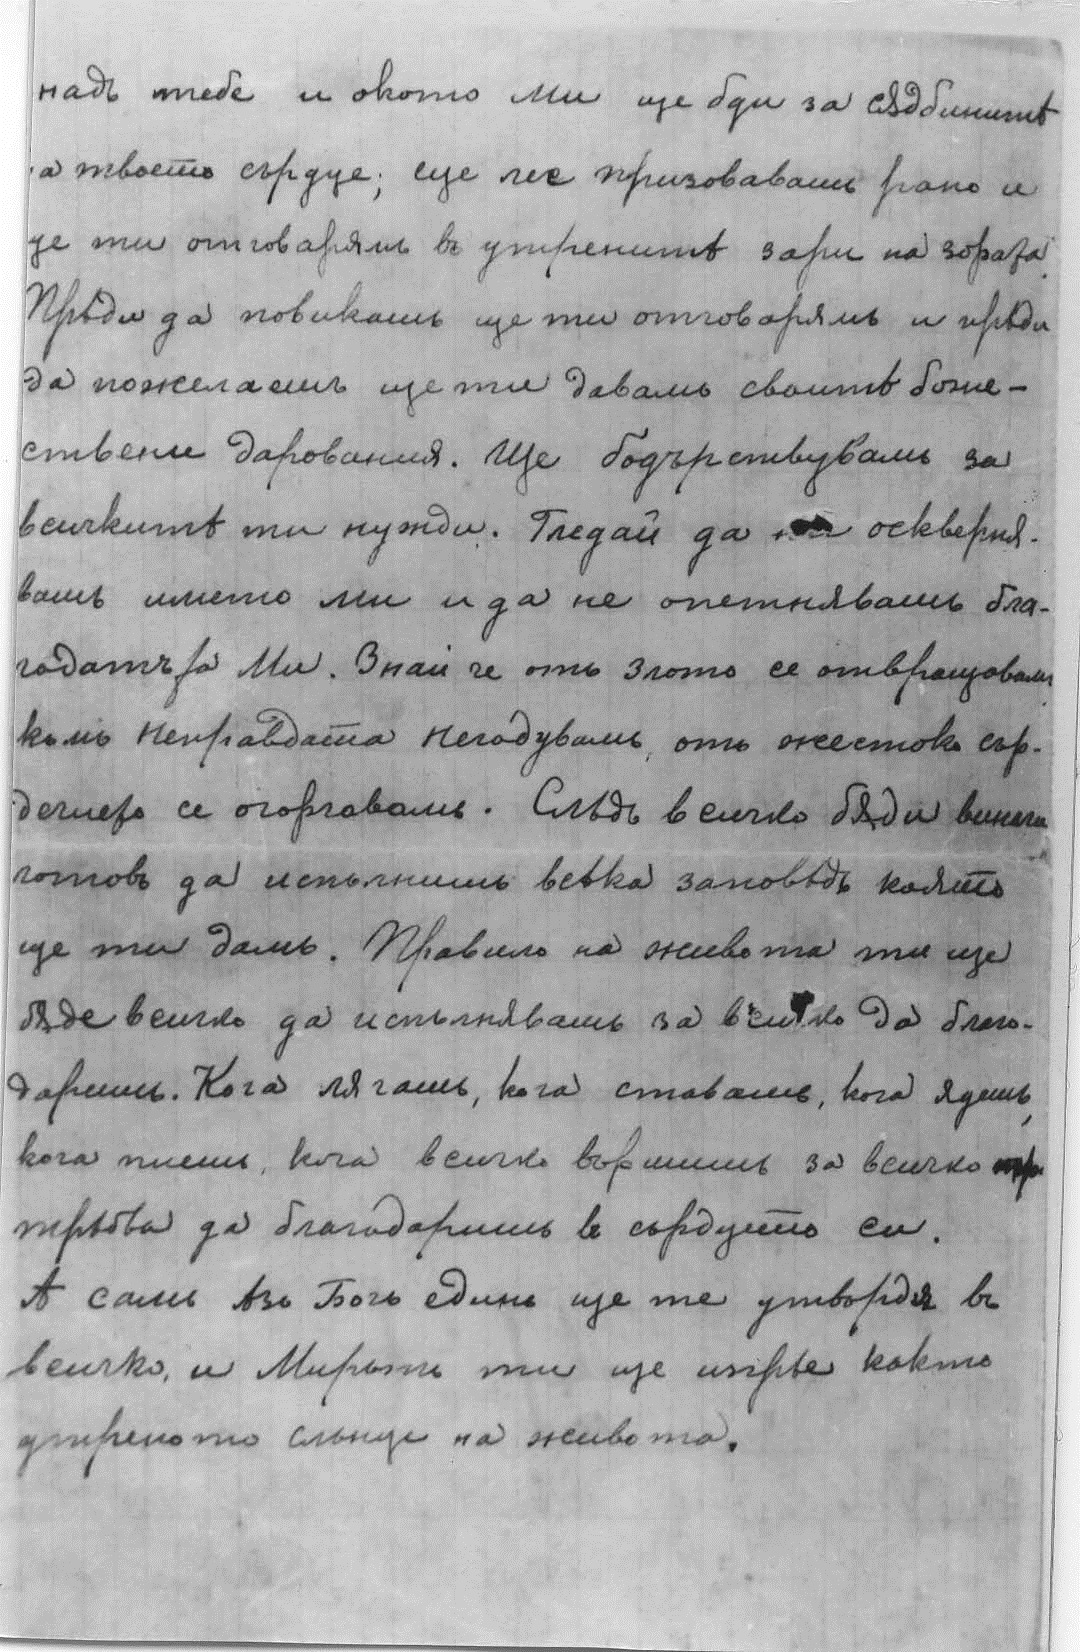 надъ тебе и окото Ми ще бди за сѫдбинитѣ
на твоето сърдце; ще ме призовавашь рано и
ще ти отговарямъ въ утренитѣ зари на зората.
Прѣди да повикашъ ще ти отговарямъ и прѣди
да пожелаешъ ще ти давамъ своитѣ боже-
ствени дарования. Ще бодърствувамъ за
всичкитѣ ти нужди. Гледай да не оскверня-
вашъ името ми и да не опетнявашъ бла-
годатьта Ми. Знай че отъ злото се отвращавамъ
къмъ неправдата негодувамъ, отъ жестоко сър-
дечието се огорчавамъ. Слѣдъ всичко бѫди винаги
готовъ да испълнишъ всѣка заповѣдь която
ще ти дамъ. Правило на живота ти ще
бѫде всичко да испълнявашъ за всичко да благо-
даришъ. Кога лягашъ, кога ставашъ, кога ядешъ,
кога пиешъ, кога всичко вършишъ за всичко
трѣбва да благодаришъ въ сърдцето си.
А самъ Азъ Богъ единъ ще те утвърдя въ
всичко, и Мирътъ ти ще изгрѣе както
утреното слънце на живота.